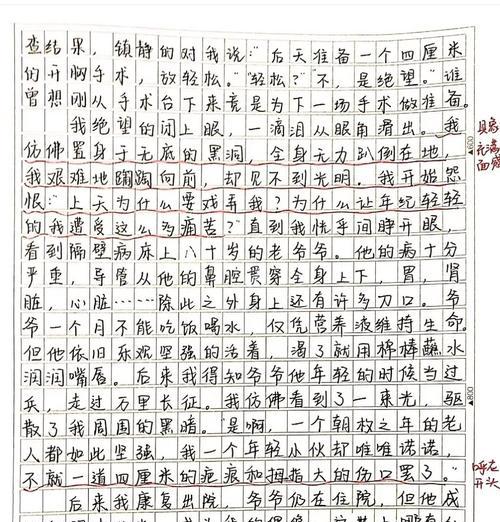 查结果，镇静的对我说："后天准备一个四厘米
的开胸手术，放轻松。""轻松？""不，是绝望。"谁
曾想刚从手术台下来竟是为下一场手术做准备。
我绝望的闭上眼，一滴泪从眼角滑出。我
仿佛置身于无底的黑洞，全身无力趴倒在地，
我艰难地蹒跚向前，却见不到光明。我开始怨
恨："上天为什么要戏弄我？为什么让年纪轻轻
的我遭受这么多痛苦？"直到我恍乎间睁开眼，
看到隔壁病床上八十岁的老爷爷。他的病十分
严重，导管从他的鼻腔贯穿全身上下，胃，肾
脏，心脏……除此之外身上还有许多刀口。爷
爷一个月不能吃饭喝水，仅凭营养液维持生命。
但他依旧乐观坚强的活着，渴了就用棉棒蘸水
润润嘴唇。后来我得知爷爷他年轻的时候当过
兵，走过万里长征。我仿佛看到了一束光，驱
散了我周围的黑暗。"是啊，一个朝枚之年的老
人都如此坚强，我一个年轻小伙却唯唯诺诺，
不就一道四厘米的疤痕和拇指大的伤口罢了。"
后来我康复出院，爷爷仍在住院，但他成
具象
充满
画感
600
800
呼应
开头